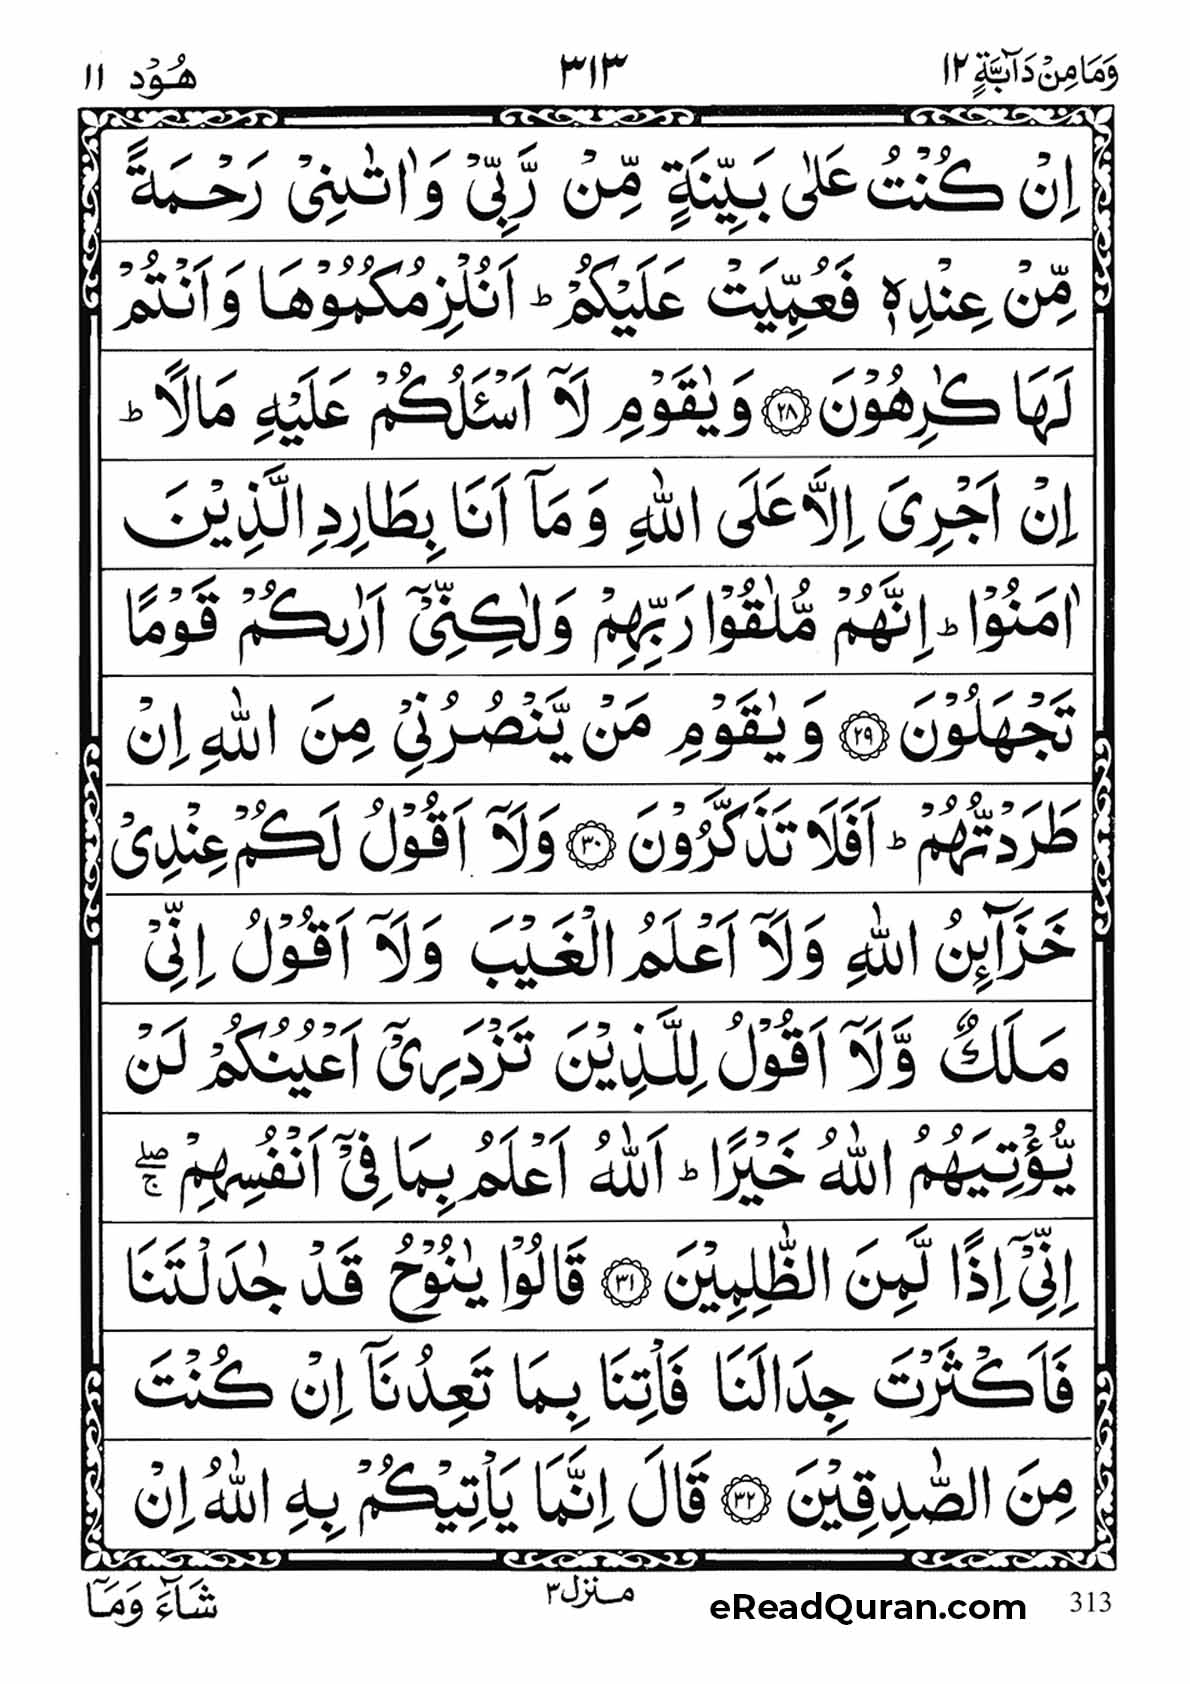 وَمَا مِنْ دَآبَّةٍ ١٢ ٣١٣ هُوْد ١١
اِنْ كُنْتُ عَلٰى بَيِّنَةٍ مِّنْ رَّبِّىْ وَاٰتٰىنِىْ رَحْمَةً
مِّنْ عِنْدِهٖ فَعُمِّيَتْ عَلَيْكُمْ ؕ اَنُلْزِمُكُمُوْهَا وَاَنْتُمْ
لَهَا كٰرِهُوْنَ ۝٢٨ وَيٰقَوْمِ لَاۤ اَسْـَٔلُكُمْ عَلَيْهِ مَالًا ؕ
اِنْ اَجْرِىَ اِلَّا عَلَى اللّٰهِ وَمَاۤ اَنَا بِطَارِدِ الَّذِيْنَ
اٰمَنُوْا ؕ اِنَّهُمْ مُّلٰقُوْا رَبِّهِمْ وَلٰكِنِّىْۤ اَرٰىكُمْ قَوْمًا
تَجْهَلُوْنَ ۝٢٩ وَيٰقَوْمِ مَنْ يَّنْصُرُنِىْ مِنَ اللّٰهِ اِنْ
طَرَدْتُّهُمْ ؕ اَفَلَا تَذَكَّرُوْنَ ۝٣٠ وَلَاۤ اَقُوْلُ لَكُمْ عِنْدِىْ
خَزَآئِنُ اللّٰهِ وَلَاۤ اَعْلَمُ الْغَيْبَ وَلَاۤ اَقُوْلُ اِنِّىْ
مَلَكٌ وَّلَاۤ اَقُوْلُ لِلَّذِيْنَ تَزْدَرِىْۤ اَعْيُنُكُمْ لَنْ
يُّؤْتِيَهُمُ اللّٰهُ خَيْرًا ؕ اَللّٰهُ اَعْلَمُ بِمَا فِىْۤ اَنْفُسِهِمْ ۖۚ
اِنِّىْۤ اِذًا لَّمِنَ الظّٰلِمِيْنَ ۝٣١ قَالُوْا يٰنُوْحُ قَدْ جٰدَلْتَنَا
فَاَكْثَرْتَ جِدَالَنَا فَاْتِنَا بِمَا تَعِدُنَاۤ اِنْ كُنْتَ
مِنَ الصّٰدِقِيْنَ ۝٣٢ قَالَ اِنَّمَا يَاْتِيْكُمْ بِهِ اللّٰهُ اِنْ
شَآءَ وَمَاۤ
منزل ٣
eReadQuran.com
313